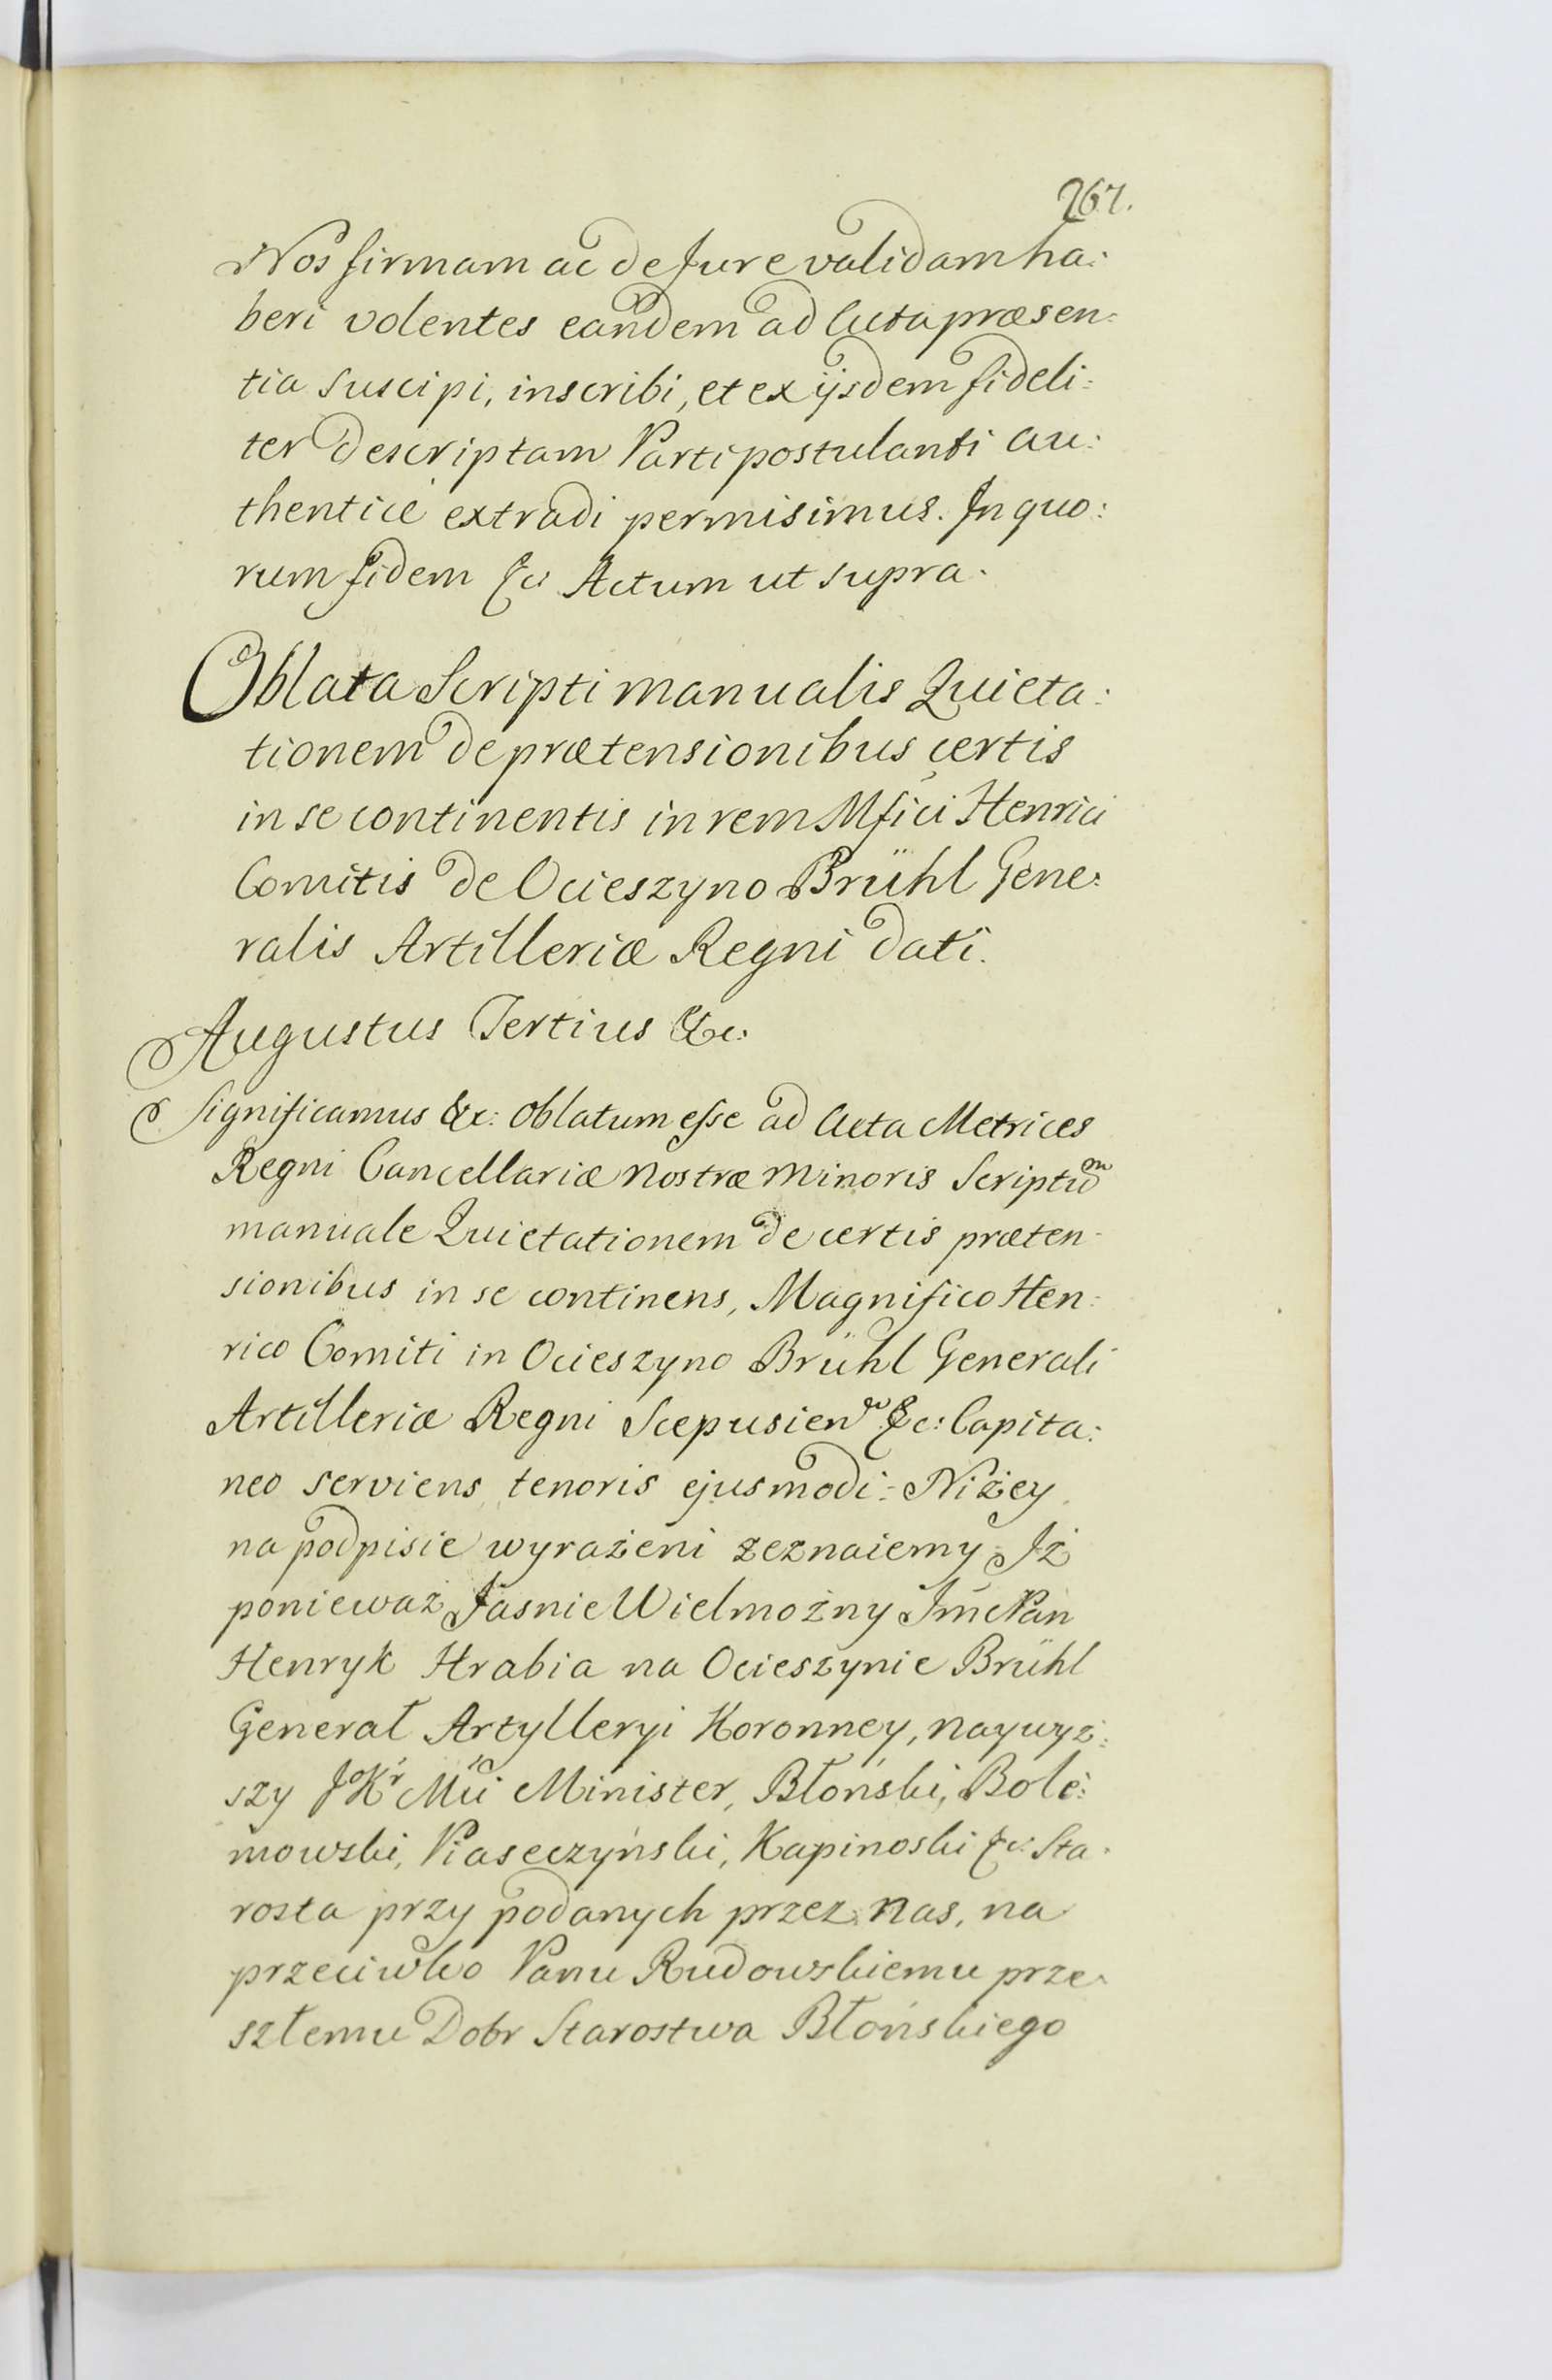 267.
Nos firmam ac de Jure validam ha:
beri volentes eandem ad Acta præsen:
tia suscipi, inscribi, et ex ijsdem fideli:
ter descriptam Parti postulanti au:
thenticè extradi permisimus. In quo:
rum fidem &c: Actum ut supra.
Oblata Scripti manualis Quieta:
tionem de prætensionibus certis
in se continentis in rem Mfici Henrici
Comitis de Ocieszyno Brühl Gene:
ralis Artilleriæ Regni dati.
Augustus Tertius &c:
Significamus &c: Oblatum esse ad Acta Metrices
Regni Cancellariæ Nostræ Minoris Scriptum
manuale Quietationem de certis præten-
sionibus in se continens, Magnifico Hen:
rico Comiti in Ocieszyno Brühl Generali
Artilleriæ Regni Scepusien &c: Capita:
neo serviens tenoris ejusmodi: Niżey
na podpisie wyrażeni zeznaiemy Iż
ponieważ Jasnie Wielmożny Jmć Pan
Henryk Hrabia na Ocieszynie Brühl
Generał Artylleryi Koronney, naywyż:
szy JKr Mci Minister, Błoński, Boli:
mowski, Piaseczyński, Kapinoski &c: Sta:
rosta przy podanych przez nas, na
przeciwko Panu Rudowskiemu prze:
szłemu Dobr Starostwa Błońskiego